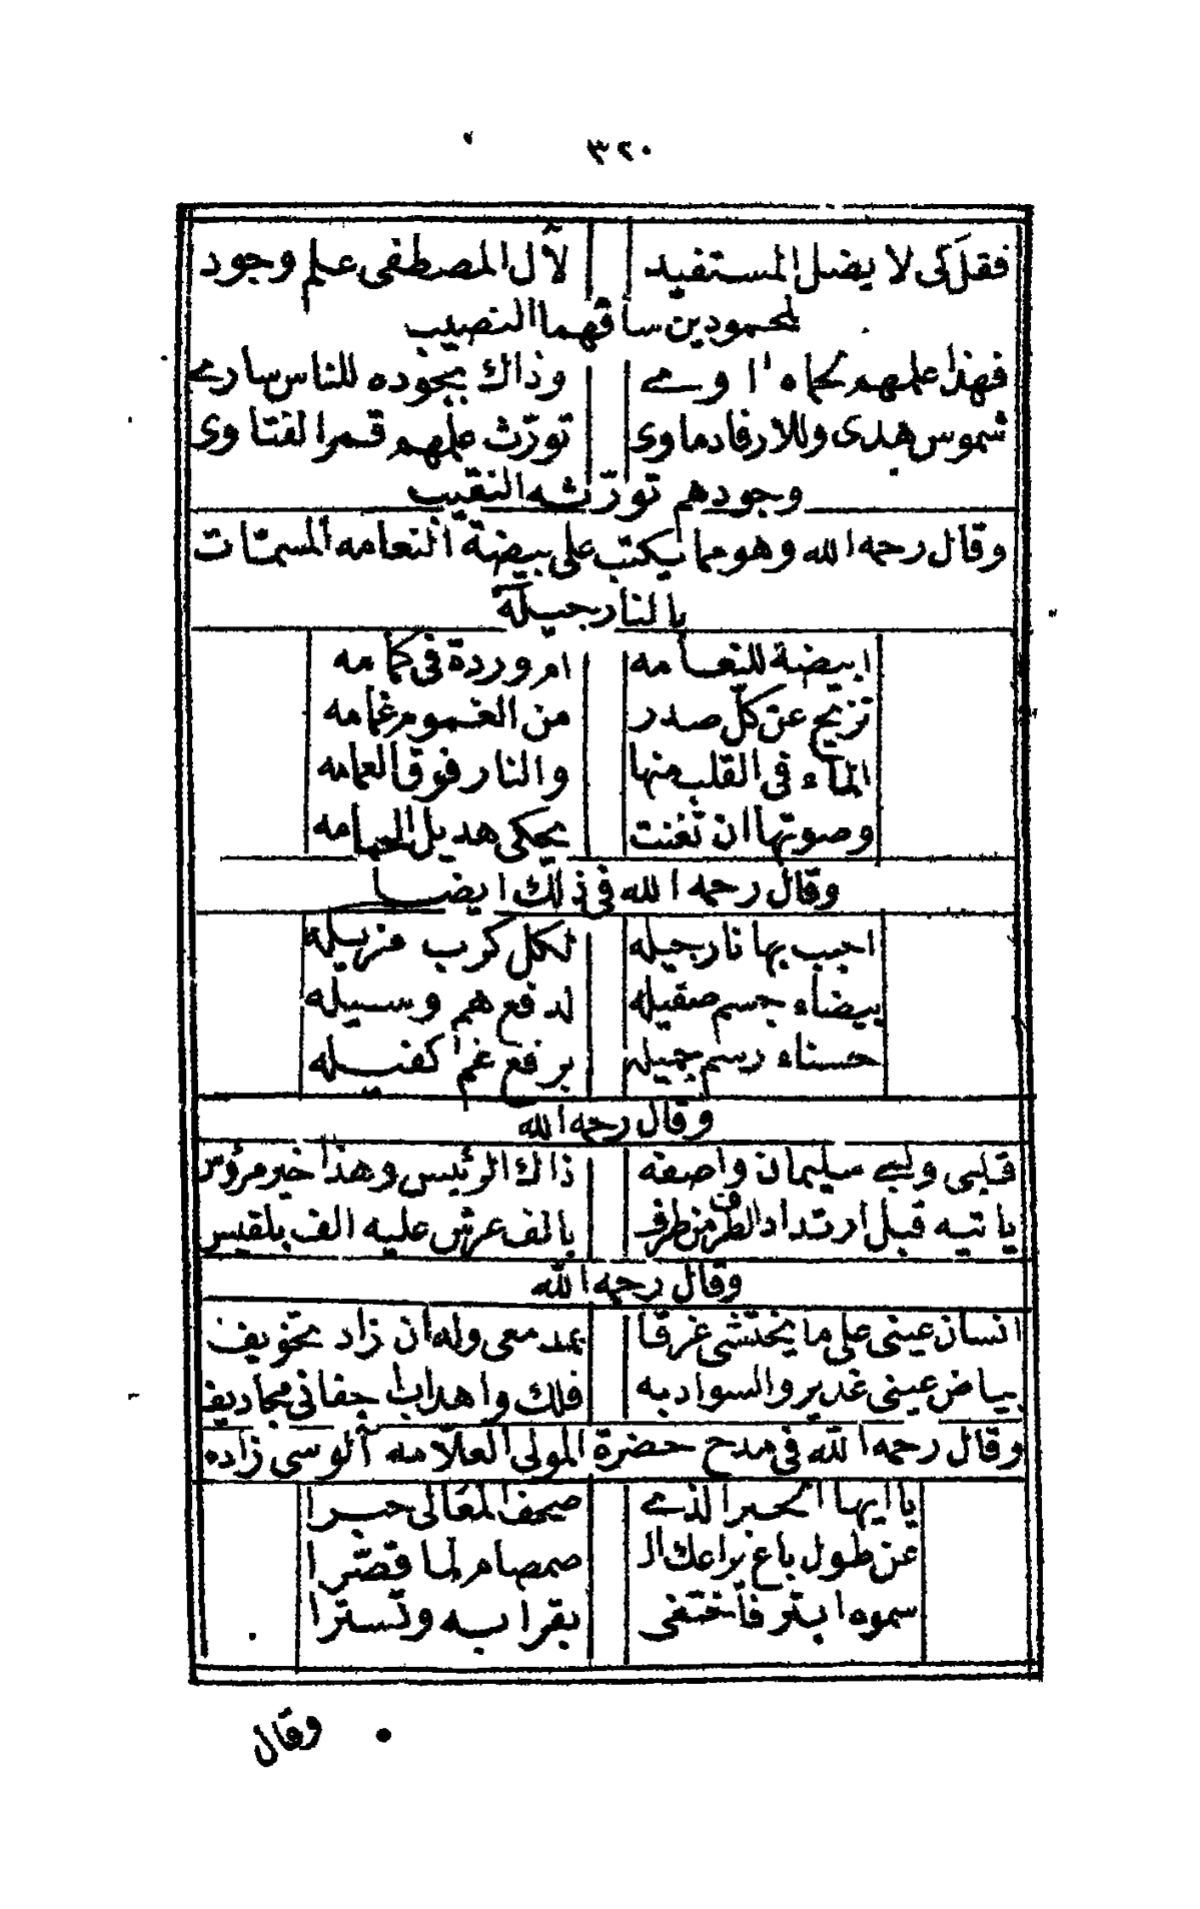 ٣٢٠
فقل كى لا يضل المستفيد لآل المصطفى علم وجود
لمحمودين ساقهما النصيب
فهذا علمهم بحماه اوى وذاك بجوده للناس سارى
شموس هدى وللارفاد ماوى تورّث علمهم قمر الفتاوى
وجودهم تورّثه النقيب
وقال رحمه الله وهو مما يكتب على بيضة النعامه المسمّات
بالنارجيلة
ابيضة للنعامه ام وردة فى كمامه
تزيح عن كلّ صدر من الغموم غمامه
الماء فى القلب منها والنار فوق العمامه
وصوتها ان تغنت يحكى هديل الحمامه
وقال رحمه الله فى ذلك ايضا
احبب بها نارجيله لكل كرب مزيله
بيضاء جسم صقيله لدفع هم وسيله
حسناء رسم جميله برفع غم كفيله
وقال رحمه الله
قلبى ولبى سليمان واصفه ذاك الرئيس وهذا خير مرؤس
ياتيه قبل ارتداد الطرف من طرف بالف عرش عليه الف بلقيس
وقال رحمه الله
انسان عينى على ما يختشى غرقا يمد معى وله ان زاد تخويف
بياض عينى غدير والسواد به فلك واهداب اجفانى مجاديف
وقال رحمه الله فى مدح حضرة المولى العلّامه آلوسى زاده
يا ايها الحبر الذى صحف المعالى حبرا
عن طول باع يراعك الـ صمصام لما قصّرا
سموه ابتر فاختفى بقرابه وتسترا
وقال